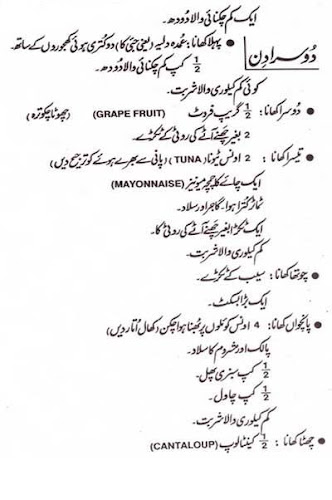 ایک کم چکنائی والا دودھ۔
دُوسرا دن
• پہلا کھانا: عُمدہ دلیہ (یعنی جئی کا) دو کتری ہوئی کھجوروں کے ساتھ۔
1/2 کپ کم چکنائی والا دودھ۔
کوئی کم کیلوری والا شربت۔
• دُوسرا کھانا: 1/2 گریپ فروٹ (GRAPE FRUIT) (چھوٹا چکوترہ)
2 بغیر چھنے آٹے کی روٹی کے ٹکڑے۔
• تیسرا کھانا: 2 اونس ٹیونا (TUNA) (پانی سے بھرے ہوئے کو ترجیح دیں)
ایک چائے کا چمچہ میونیز (MAYONNAISE)
ٹماٹر کترا ہوا۔ گاجر اور سلاد۔
ایک ٹکڑا بغیر چھنے آٹے کی روٹی کا۔
کم کیلوری والا شربت۔
• چوتھا کھانا: سیب کے ٹکڑے۔
ایک بڑا بسکٹ۔
• پانچواں کھانا: 4 اونس کوئلوں پر بُھنا ہوا چکن (کھال اُتار دیں)
پالک اور مشروم کا سلاد۔
1/2 کپ سبزی پھل۔
1/2 کپ چاول۔
کم کیلوری والا شربت۔
• چھٹا کھانا: 1/2 کینٹالوپ (CANTALOUP)